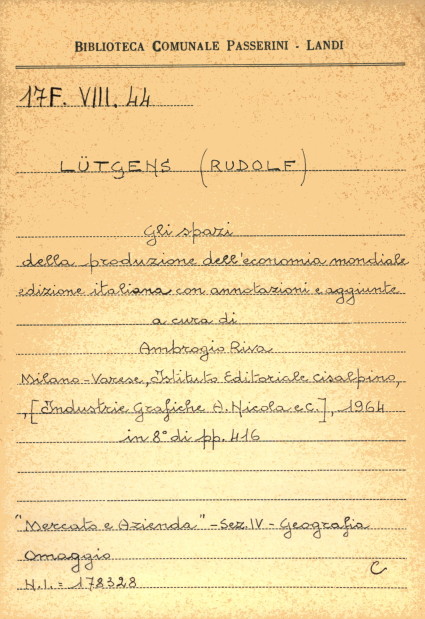 BIBLIOTECA COMUNALE PASSERINI - LANDI
17F. VIII. 44
LÜTGENS (RUDOLF)
Gli spazi
della produzione dell'economia mondiale
edizione italiana con annotazioni e aggiunte
a cura di
Ambrogio Riva
Milano-Varese, Istituto Editoriale Cisalpino,
,[Industrie Grafiche A. Nicola e C.], 1964
in 8° di pp. 416
"Mercato e Azienda" - Sez. IV - Geografia
Omaggio
C
N.I. = 178328